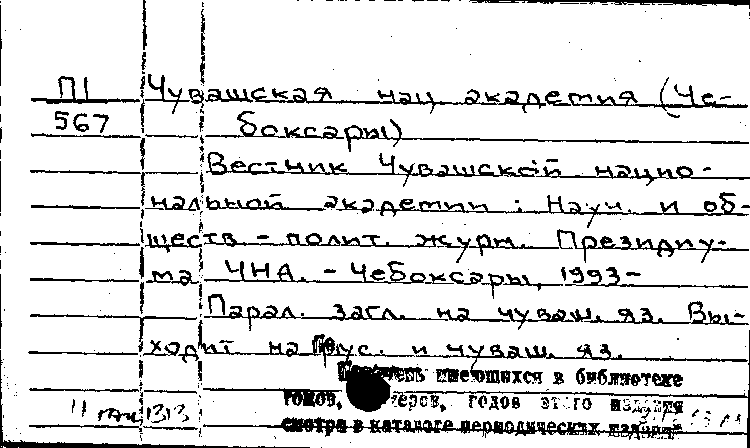 П1 Чувашская нац. академия (Че-
567 боксары)
Вестник Чувашской нацио-
нальной академии : Науч. и об-
ществ - полит. журн. Президиу-
ма ЧНА. - Чебоксары, 1993-
Парал. загл. на чуваш. яз. Вы-
ходит на рус. и чуваш. яз.
Перечень имеющихся в библиотеке
томов, номеров, годов этого издания
смотри в каталоге периодических изданий